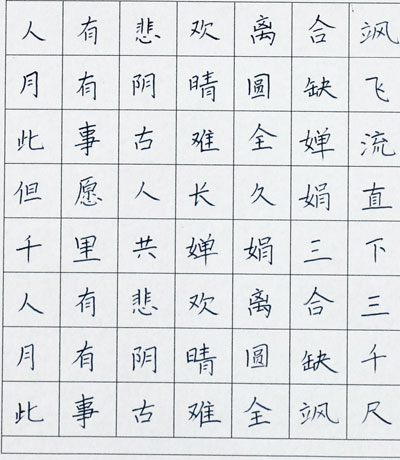 人有悲欢离合飒
月有阴晴圆缺飞
此事古难全婵流
但愿人长久娟直
千里共婵娟三下
人有悲欢离合三
月有阴晴圆缺千
此事古难全飒尺